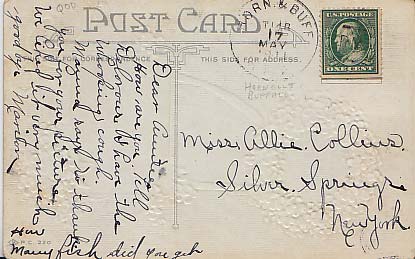 POST CARD
THIS SIDE FOR ADDRESS.
HORN. & BUFF.
17
MAY
U.S. POSTAGE
ONE CENT
HORNELL &
BUFFALO
Dear Auntie
How are you. Tell
Eleanor I have the
Whooping cough.
Mama says to thank
you for your picture
We liked it very much
good bye Marion
How
Many fish did you get
Miss Allie Collins.
Silver Springs
New York